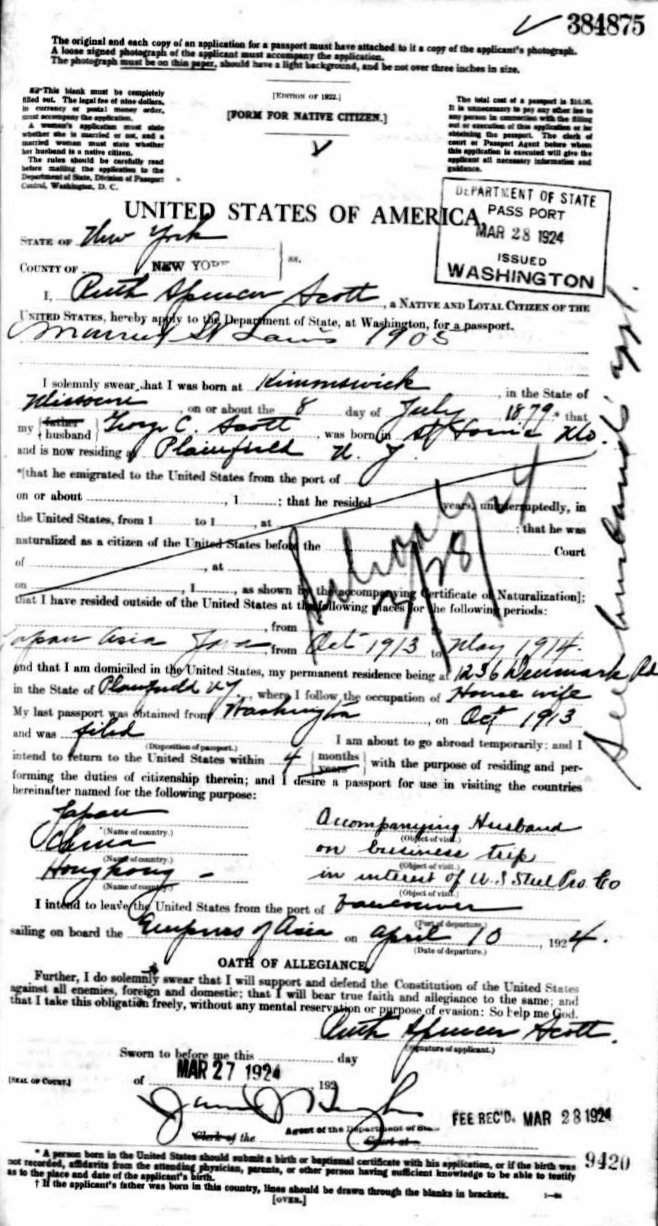 384875
The original and each copy of an application for a passport must have attached to it a copy of the applicant's photograph.
A loose signed photograph of the applicant must accompany the application.
The photograph must be on thin paper, should have a light background, and be not over three inches in size.
This blank must be completely
filled out. The legal fee of nine dollars,
in currency or postal money order,
must accompany the application.
A woman's application must state
whether she is married or not, and a
married woman must state whether
her husband is a native citizen.
The rules should be carefully read
before mailing the application to the
Department of State, Division of Passport
Control, Washington, D. C.
[EDITION OF 1922.]
[FORM FOR NATIVE CITIZEN.]
The total cost of a passport is $10.00.
It is unnecessary to pay any other fee to
any person in connection with the filling
out or execution of this application or for
obtaining the passport. The clerk of
court or Passport Agent before whom
this application is executed will give the
applicant all necessary information and
guidance.
DEPARTMENT OF STATE
PASS PORT
MAR 28 1924
ISSUED
WASHINGTON
UNITED STATES OF AMERICA,
STATE OF New York
COUNTY OF NEW YORK ss.
I, Ruth Spencer Scott, a NATIVE AND LOYAL CITIZEN OF THE
UNITED STATES, hereby apply to the Department of State, at Washington, for a passport.
Married St Louis 1903
I solemnly swear that I was born at Kimmswick, in the State of
Missouri, on or about the 8 day of July, 1879, that
my father husband George C. Scott, was born in St Louis Mo.
and is now residing at Plainfield N. J.
*[that he emigrated to the United States from the port of
on or about , 1 ; that he resided years, uninterruptedly, in
the United States, from 1 to 1 , at ; that he was
naturalized as a citizen of the United States before the Court
of , at
on , 1 , as shown by the accompanying Certificate of Naturalization];
that I have resided outside of the United States at the following places for the following periods:
, from
Japan Asia Java, from Oct 1913 to May 1914.
and that I am domiciled in the United States, my permanent residence being at 1236 Denmark Rd
in the State of Plainfield NJ, where I follow the occupation of House wife
My last passport was obtained from Washington, on Oct 1913
and was filed
(Disposition of passport.)
I am about to go abroad temporarily; and I
intend to return to the United States within 4 months years with the purpose of residing and per-
forming the duties of citizenship therein; and I desire a passport for use in visiting the countries
hereinafter named for the following purpose:
Japan Accompanying Husband
(Name of country.) (Object of visit.)
China on business trip
(Name of country.) (Object of visit.)
Hongkong in interest of U.S Steel Pro. Co
(Name of country.) (Object of visit.)
I intend to leave the United States from the port of Vancouver
(Port of departure.)
sailing on board the Empress of Asia on April 10, 1924.
(Date of departure.)
OATH OF ALLEGIANCE.
Further, I do solemnly swear that I will support and defend the Constitution of the United States
against all enemies, foreign and domestic; that I will bear true faith and allegiance to the same; and
that I take this obligation freely, without any mental reservation or purpose of evasion: So help me God.
Ruth Spencer Scott.
(Signature of applicant.)
Sworn to before me this day
MAR 27 1924
[SEAL OF COURT.] of , 192
FEE REC'D. MAR 28 1924
Agent of the Department of State
Clerk of the Court at
9420
* A person born in the United States should submit a birth or baptismal certificate with his application, or if the birth was
not recorded, affidavits from the attending physician, parents, or other person having sufficient knowledge to be able to testify
as to the place and date of the applicant's birth.
† If the applicant's father was born in this country, lines should be drawn through the blanks in brackets.
[OVER.]
See husband's appl.
3/28/24